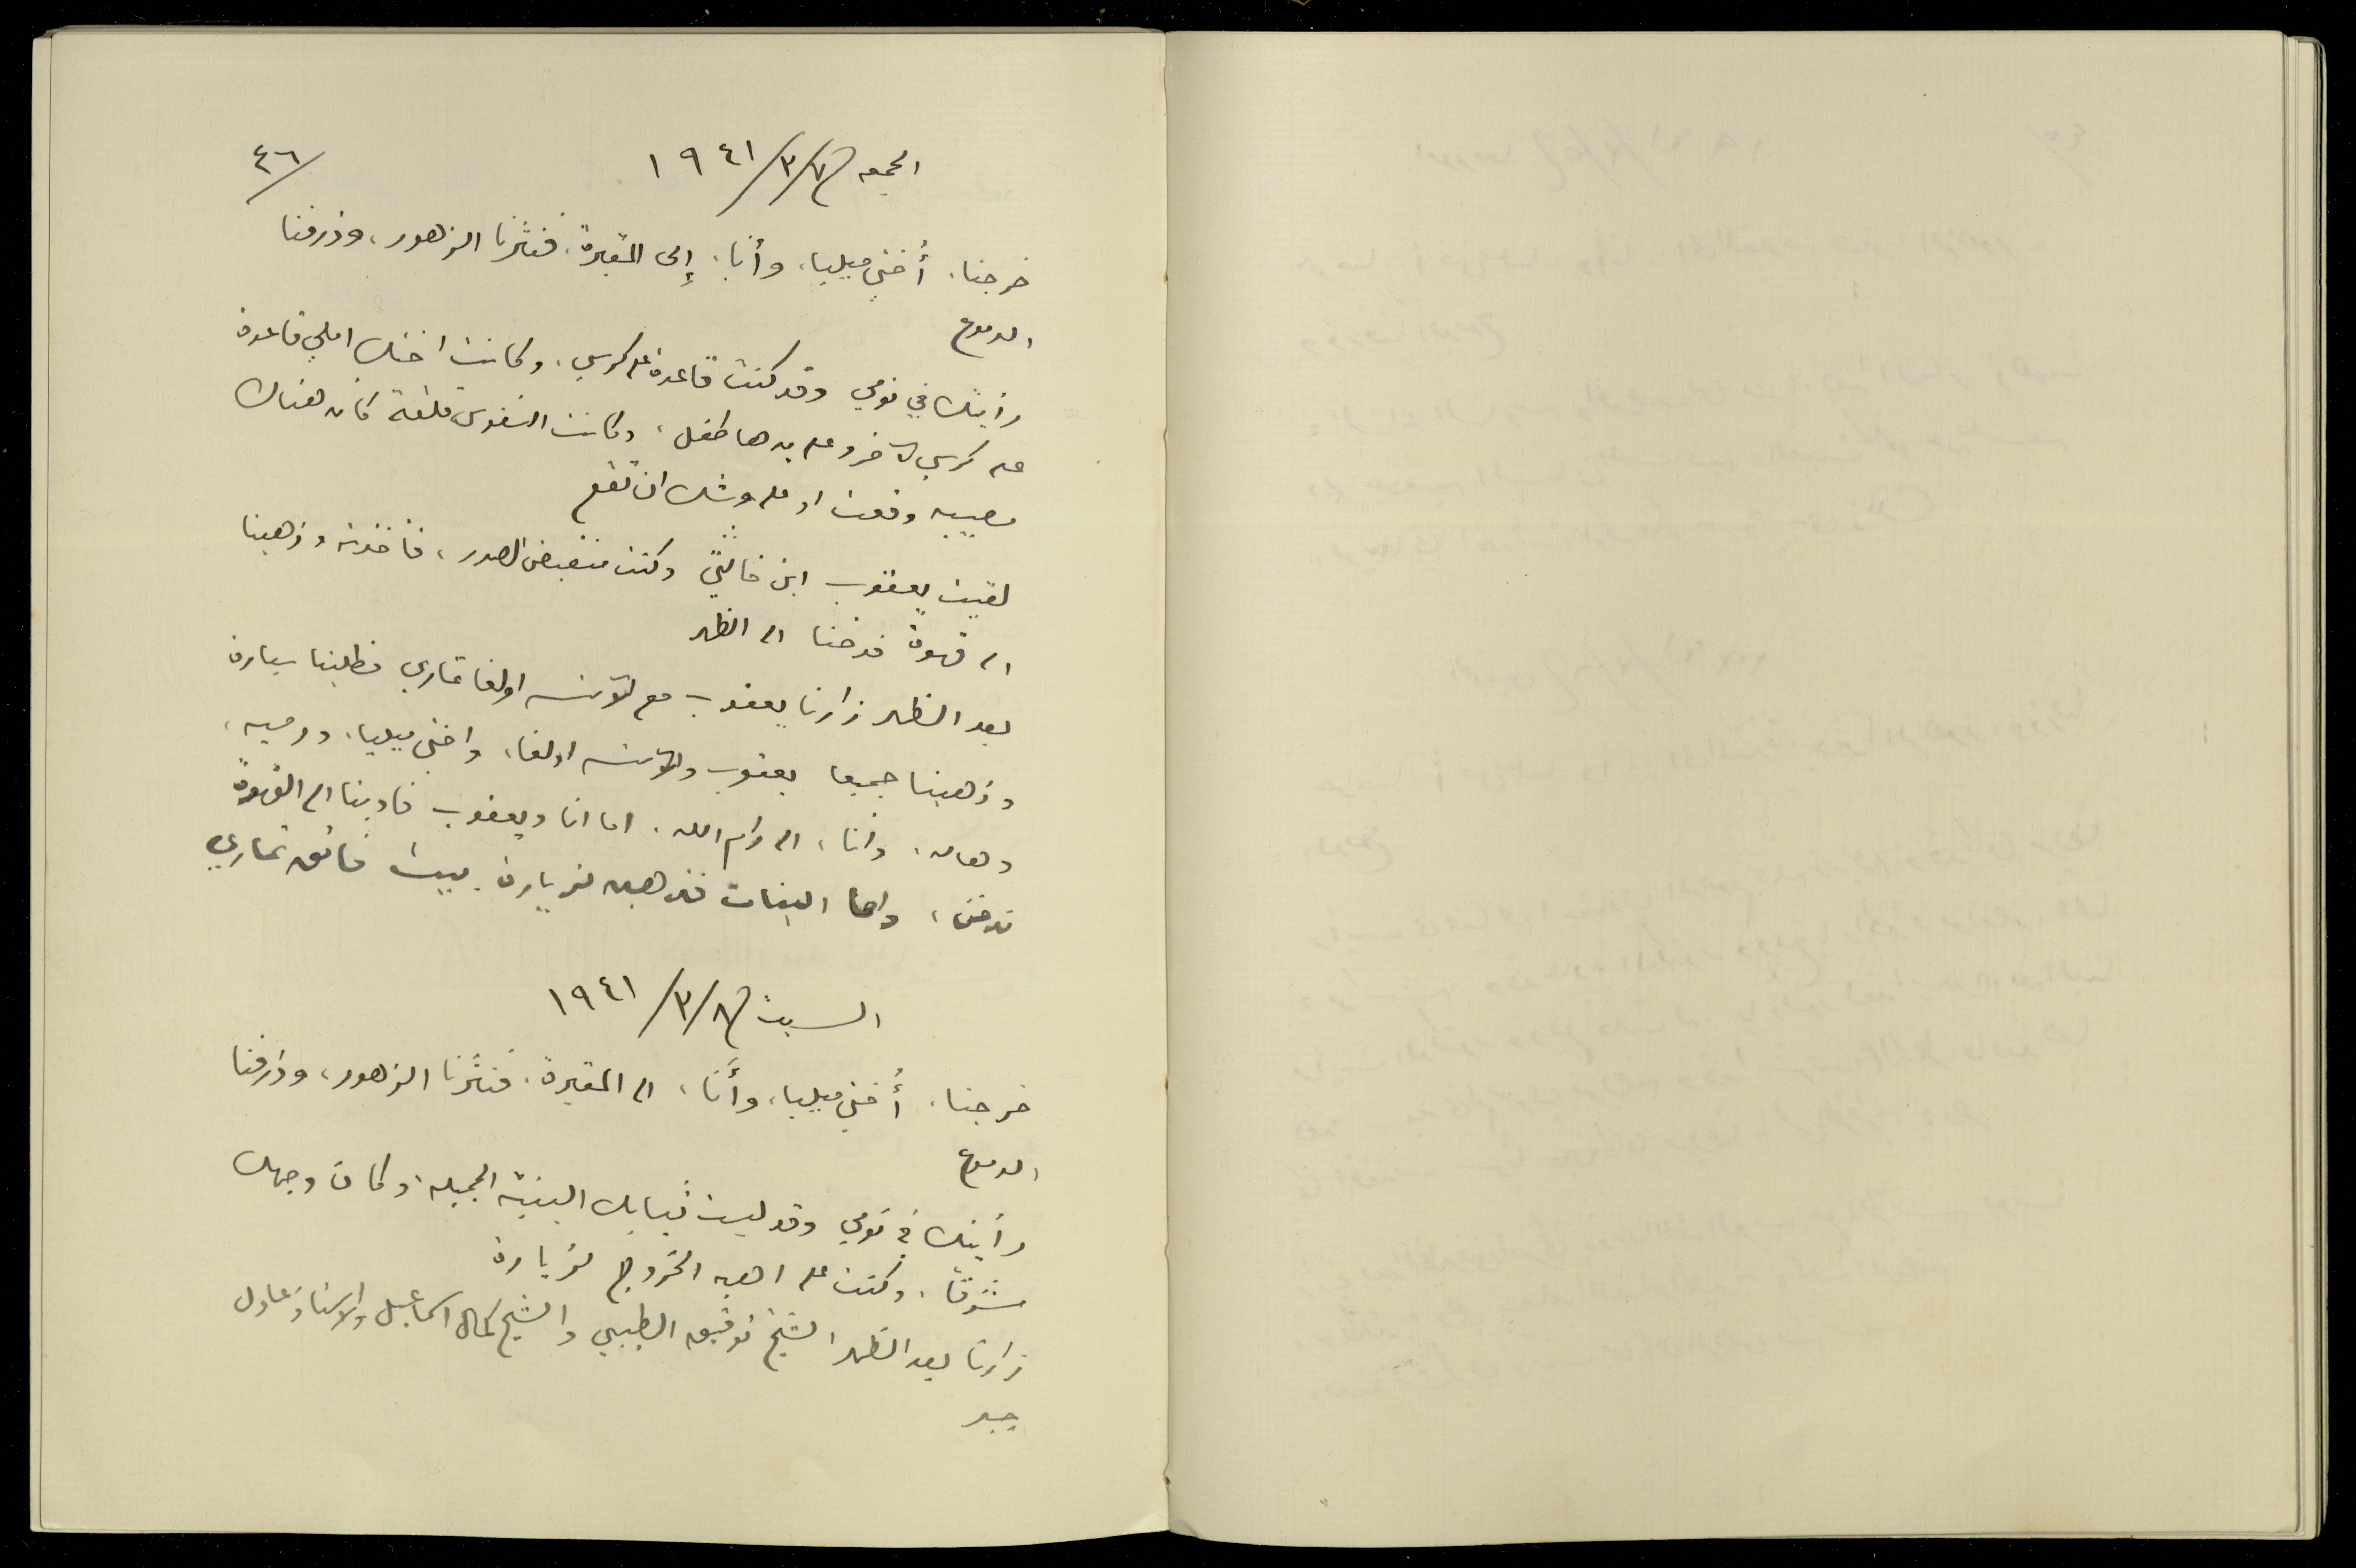 ٤٦/
الجمعه ٧/٣/١٩٤١
خرجنا، أختي ميليا، وأنا، إلى المقبرة، فنثرنا الزهور، وذرفنا
الدموع
رأيتك في نومي وقد كنت قاعدة على كرسي، وكانت اختك املي قاعدة
على كرسي لآخر وعلى يدها طفل، وكانت النفوس قلقة كان هناك
مصيبه وقعت او على وشك ان تقع
لقيت يعقوب ابن خالتي وكنت منقبض الصدر، فأخذته وذهبنا
الى قهوة فدخنا الى الظهر
بعد الظهر زارنا يعقوب مع الآنسه اولغا تماري فطلبنا سيارة
وذهبنا جميعا يعقوب والآنسه اولغا، واختي ميليا، ودميه،
وهاله، وأنا، الى رام الله، اما انا ويعقوب فاوينا الى القهوة
ندخن، واما البنات فذهبن لزيارة بيت فائق تماري
السبت ٨/٣/١٩٤١
خرجنا، أختي ميليا، وأنا، الى المقبرة، فنثرنا الزهور، وذرفنا
الدموع
رأيتك في نومي وقد لبست ثيابك البنية الجميله، وكان وجهك
مشرقا، وكنت على اهبه الخروج لزيارة
زارنا بعد الظهر الشيخ توفيق الطيبي والشيخ كمال اسماعيل والاستاذ عادل
جبر